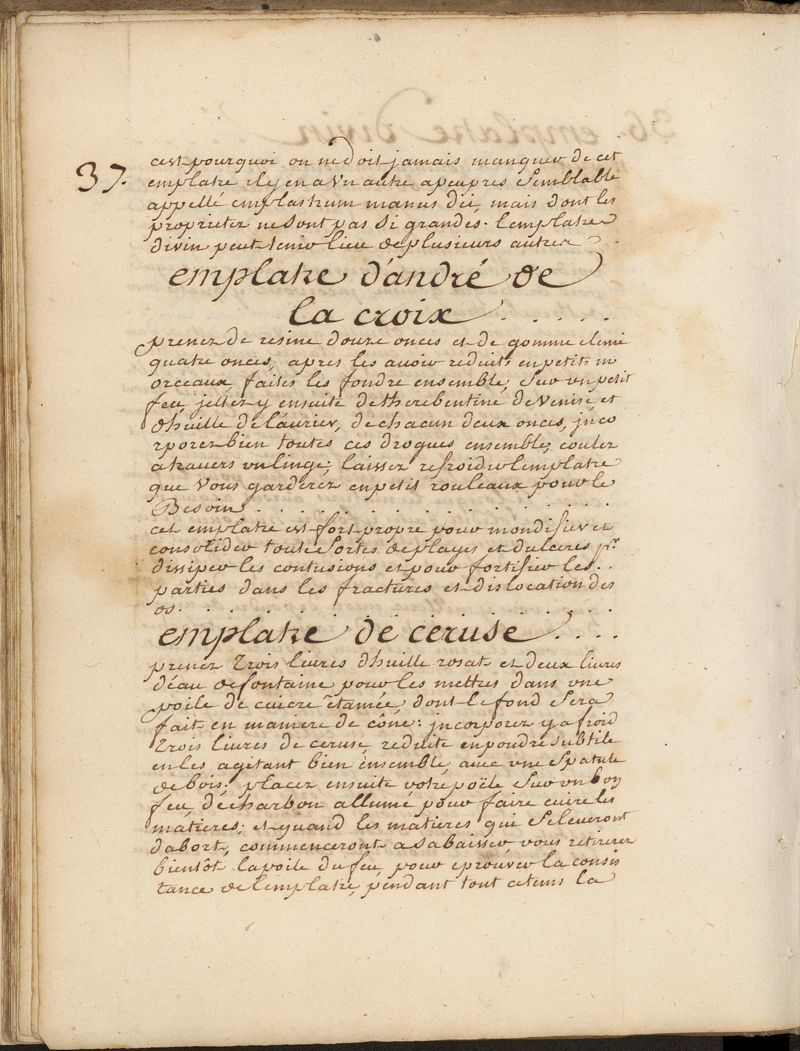 37.
cest pourquoi on ne doit jamais manquer de cet
emplatre il y en a vn autre apeupres Semblable
appellé emplastrum manus dei, mais dont les
proprietez ne sont pas si grandes. lemplatre
divin peut tenir lieu de plusieurs autres
emplatre d'andré de
la croix . . . . .
prenez de resine douze onces et de gomme elemi
quatre onces, apres les avoir reduits en petits m
orceaux, faites les fondre ensemble, Sur vn petit
feu, jettez y ensuite de therebentine de Venise, et
dhuille de laurier, de chacun deux onces, jnco
rporez bien toutes ces drogues ensemble, coulez
atravers vn linge, laissez refroidir lemplatre
que vous garderez en petit rouleaux pour le
Besoin . . . . . . . . . . . . .
cet emplatre est fort propre pour mondifier et
consolider toute Sortes de playes et dulceres pr.
dissiper les contusions et pour fortifier les . .
parties dans les fractures et dislocation des
os. . . . . . . . . . . . .
emplatre de ceruse . . . .
prenez Trois livres dhuille rosat et deux livres
déau de fontaine pour les mettres dans vne
poile de cuicre étamée dont le fond Sera
fait en maniere de cône: jncorporez y a froid
Trois livres de ceruse reduite en poudre subtile
en les agitant bien ensemble avec vne Spatule
de bois; placez ensuite votre poële Sur vn bon
feu de charbon allumé pour faire cuire les
matieres; et quand les matieres qui Seleveront
dabort, commenceront a sabaisser vous retirerez
bientôt la poile du feu pour eprouver la consis
tance de lemplatre, pendant tout cetems la